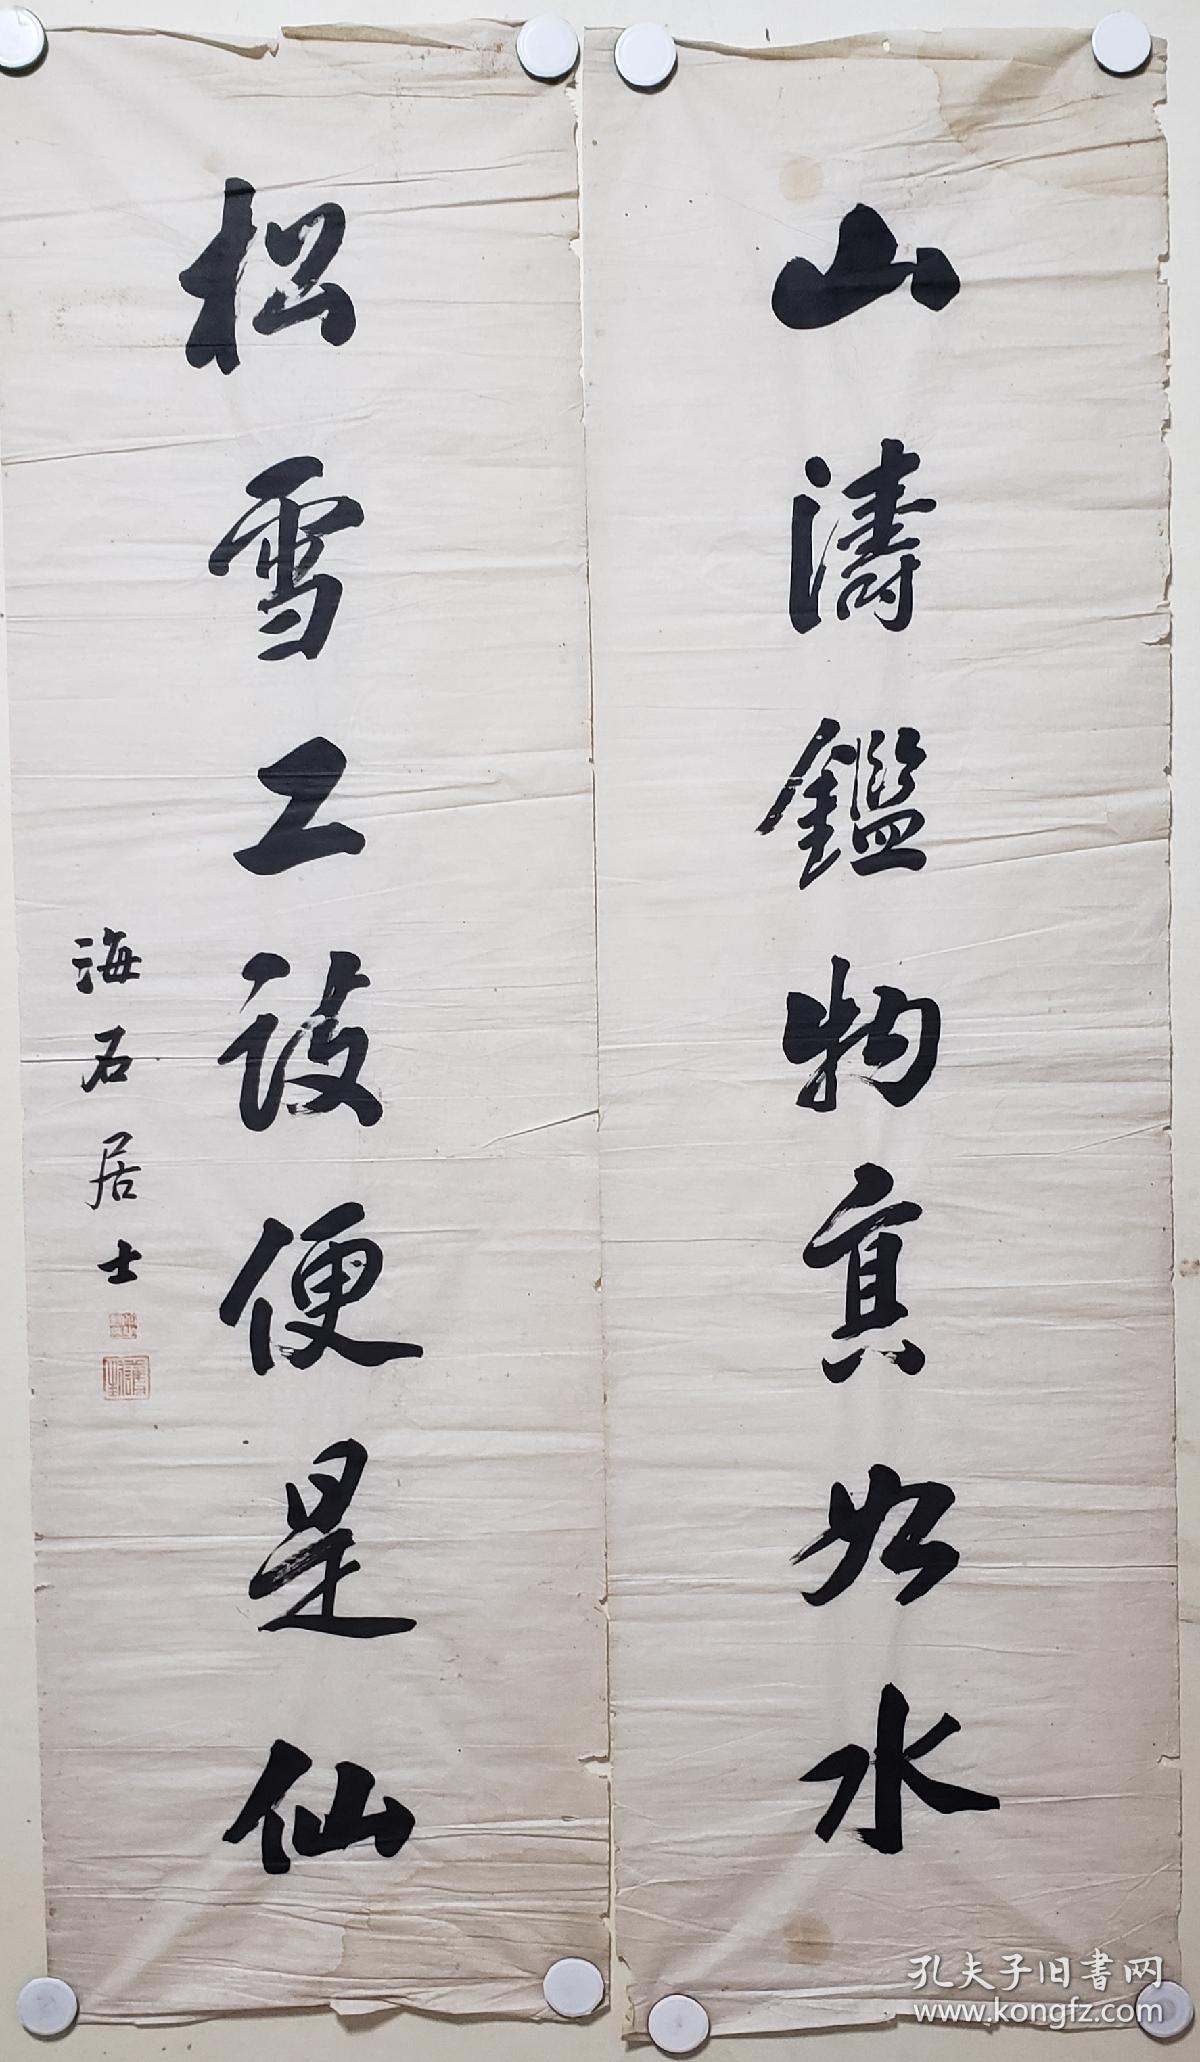 山濤鑑物真如水
松雪工詩便是仙
海石居士
孔夫子旧書网
www.kongfz.com